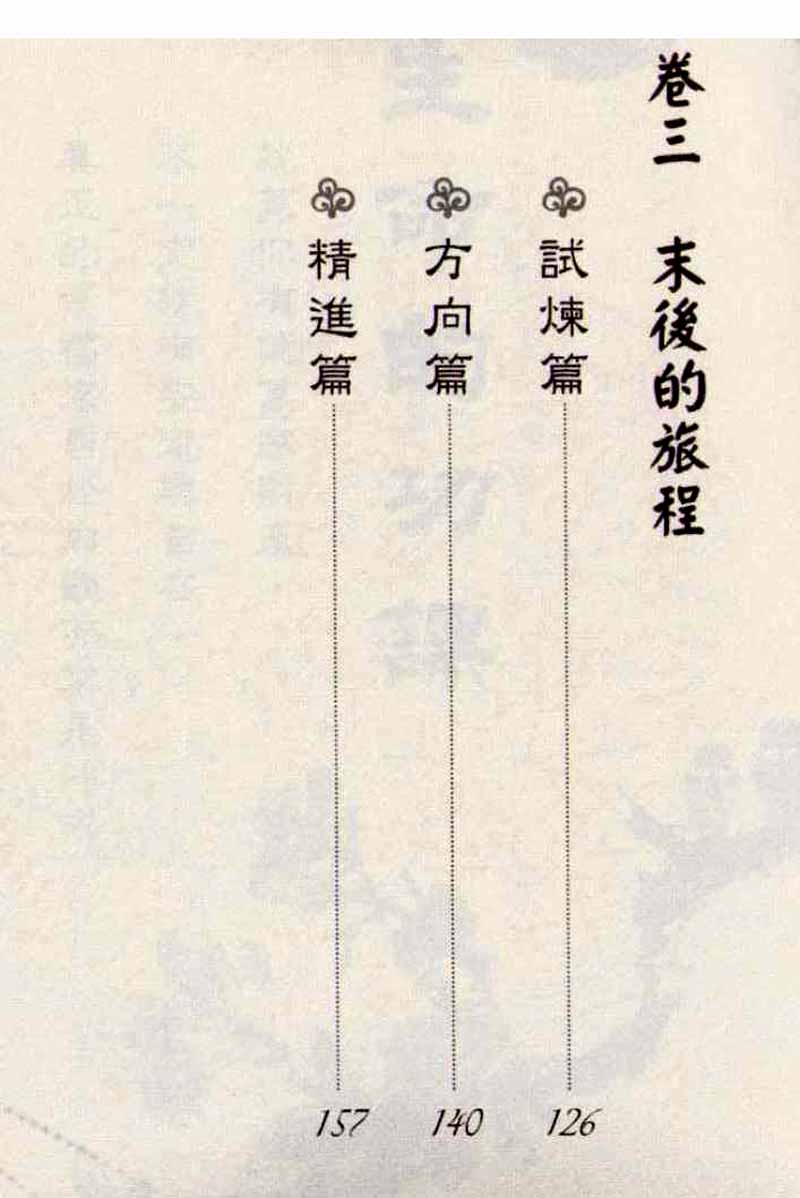 卷三 末後的旅程
試煉篇 126
方向篇 140
精進篇 157